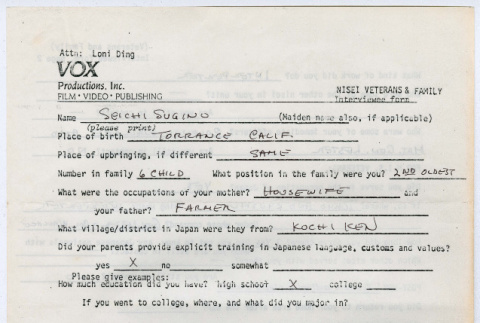 Attn: Loni Ding
VOX
Productions, Inc.
FILM • VIDEO • PUBLISHING
NISEI VETERANS & FAMILY
Interviewee form
Name SEICHI SUGINO (Maiden name also, if applicable)
(please print)
Place of birth TORRANCE CALIF.
Place of upbringing, if different SAME
Number in family 6 CHILD What position in the family were you? 2ND OLDEST
What were the occupations of your mother? HOUSEWIFE and
your father? FARMER
What village/district in Japan were they from? KOCHI KEN
Did your parents provide explicit training in Japanese language, customs and values?
yes X no somewhat
Please give examples:
How much education did you have? high school X college
If you went to college, where, and what did you major in?